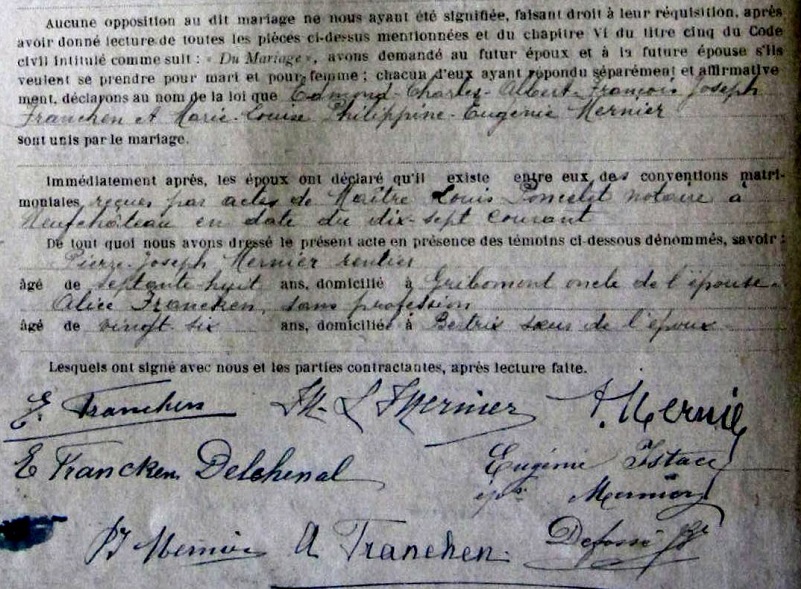 Aucune opposition au dit mariage ne nous ayant été signifiée, faisant droit à leur réquisition, après
avoir donné lecture de toutes les pièces ci-dessus mentionnées et du chapitre VI du titre cinq du Code
civil intitulé comme suit : « Du Mariage », avons demandé au futur époux et à la future épouse s'ils
veulent se prendre pour mari et pour femme ; chacun d'eux ayant répondu séparément et affirmative
ment, déclarons au nom de la loi que Edmond-Charles-Albert-François Joseph
Francken et Marie-Louise Philippine-Eugénie Mernier
sont unis par le mariage.
Immédiatement après, les époux ont déclaré qu'il existe entre eux des conventions matri-
moniales reçues par actes de Maître Louis Poncelet notaire à
Neufchâteau en date du dix-sept courant
De tout quoi nous avons dressé le présent acte en présence des témoins ci-dessous dénommés, savoir :
Pierre-Joseph Mernier rentier
âgé de septante huit ans, domicilié à Gribomont oncle de l'épouse
Alice Francken, sans profession
âgé de vingt six ans, domiciliée à Bertrix sœur de l'époux
Lesquels ont signé avec nous et les parties contractantes, après lecture faite.
E. Francken M. L. Mernier A. Mernier
E Francken Delchenal Eugénie Istace
ép. Mernier
PJ Mernier A Francken Defossé